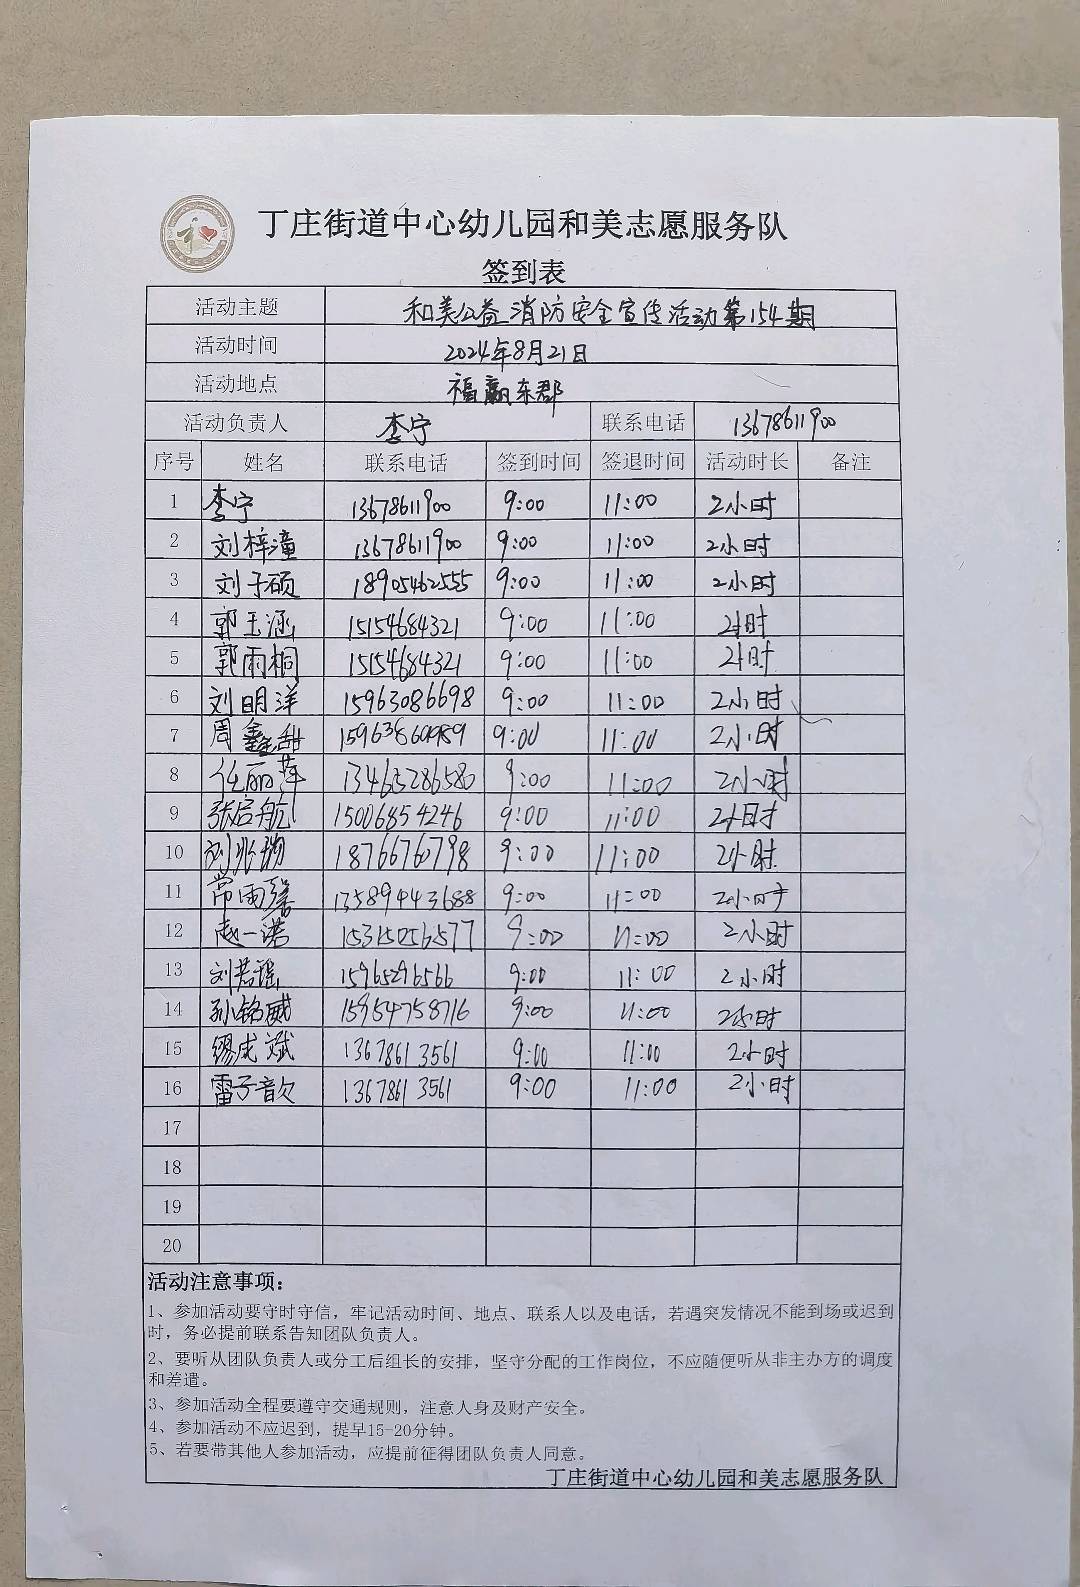 丁庄街道中心幼儿园和美志愿服务队
签到表
活动主题 和美公益消防安全宣传活动第154期
活动时间 2024年8月21日
活动地点 福赢东郡
活动负责人 李宁 联系电话 13678611900
序号 姓名 联系电话 签到时间 签退时间 活动时长 备注
1 李宁 13678611900 9:00 11:00 2小时
2 刘梓潼 13678611900 9:00 11:00 2小时
3 刘子硕 18905462555 9:00 11:00 2小时
4 郭玉涵 15154684321 9:00 11:00 2小时
5 郭雨桐 15154684321 9:00 11:00 2小时
6 刘明洋 15963086698 9:00 11:00 2小时
7 周鑫甜 9:00 11:00 2小时
8 任丽萍 13465286580 9:00 11:00 2小时
9 张启航 15006854246 9:00 11:00 2小时
10 18766760798 9:00 11:00 2小时
11 常雨馨 13589443688 9:00 11:00 2小时
12 赵一诺 15315056577 9:00 11:00 2小时
13 刘若瑶 15965296566 9:00 11:00 2小时
14 孙铭威 15954758716 9:00 11:00 2小时
15 缪成斌 13678613561 9:00 11:00 2小时
16 雷子音欠 13678613561 9:00 11:00 2小时
17
18
19
20
活动注意事项：
1、参加活动要守时守信，牢记活动时间、地点、联系人以及电话，若遇突发情况不能到场或迟到
时，务必提前联系告知团队负责人。
2、要听从团队负责人或分工后组长的安排，坚守分配的工作岗位，不应随便听从非主办方的调度
和差遣。
3、参加活动全程要遵守交通规则，注意人身及财产安全。
4、参加活动不应迟到，提早15-20分钟。
5、若要带其他人参加活动，应提前征得团队负责人同意。
丁庄街道中心幼儿园和美志愿服务队